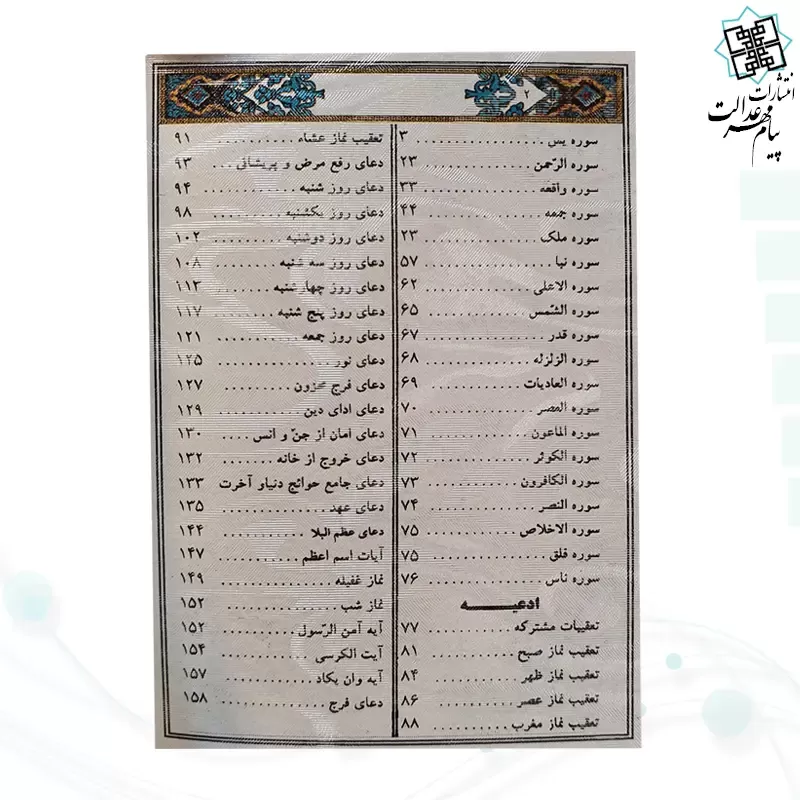 انتشارات
پیام مهر عدالت
۲
سوره یس ................ ۳
سوره الرّحمن ............ ۲۳
سوره واقعه ............ ۳۳
سوره جمعه ............ ۴۴
سوره ملک ............ ۲۳
سوره نبا ............ ۵۷
سوره الاعلی ............ ۶۲
سوره الشّمس ............ ۶۵
سوره قدر ............ ۶۷
سوره الزلزله ............ ۶۸
سوره العادیات ............ ۶۹
سوره العصر ............ ۷۰
سوره الماعون ............ ۷۱
سوره الکوثر ............ ۷۲
سوره الکافرون ............ ۷۳
سوره النصر ............ ۷۴
سوره الاخلاص ............ ۷۵
سوره فلق ............ ۷۵
سوره ناس ............ ۷۶
ادعیــــه
تعقیبات مشترکه ............ ۷۷
تعقیب نماز صبح ............ ۸۱
تعقیب نماز ظهر ............ ۸۴
تعقیب نماز عصر ............ ۸۶
تعقیب نماز مغرب ............ ۸۸
تعقیب نماز عشاء ............ ۹۱
دعای رفع مرض و پریشانی ... ۹۳
دعای روز شنبه ............ ۹۴
دعای روز یکشنبه ............ ۹۸
دعای روز دوشنبه ............ ۱۰۲
دعای روز سه شنبه ............ ۱۰۸
دعای روز چهارشنبه ............ ۱۱۳
دعای روز پنج شنبه ............ ۱۱۷
دعای روز جمعه ............ ۱۲۱
دعای نور ............ ۱۲۵
دعای فرج محزون ............ ۱۲۷
دعای ادای دین ............ ۱۲۹
دعای امان از جنّ و انس .... ۱۳۰
دعای خروج از خانه ........ ۱۳۲
دعای جامع حوائج دنیاو آخرت ۱۳۳
دعای عهد ............ ۱۳۵
دعای عظم البلا ............ ۱۴۴
آیات اسم اعظم ............ ۱۴۷
نماز غفیله ............ ۱۴۹
نماز شب ............ ۱۵۲
آیه آمن الرّسول ............ ۱۵۲
آیت الکرسی ............ ۱۵۴
آیه وان یکاد ............ ۱۵۷
دعای فرج ............ ۱۵۸